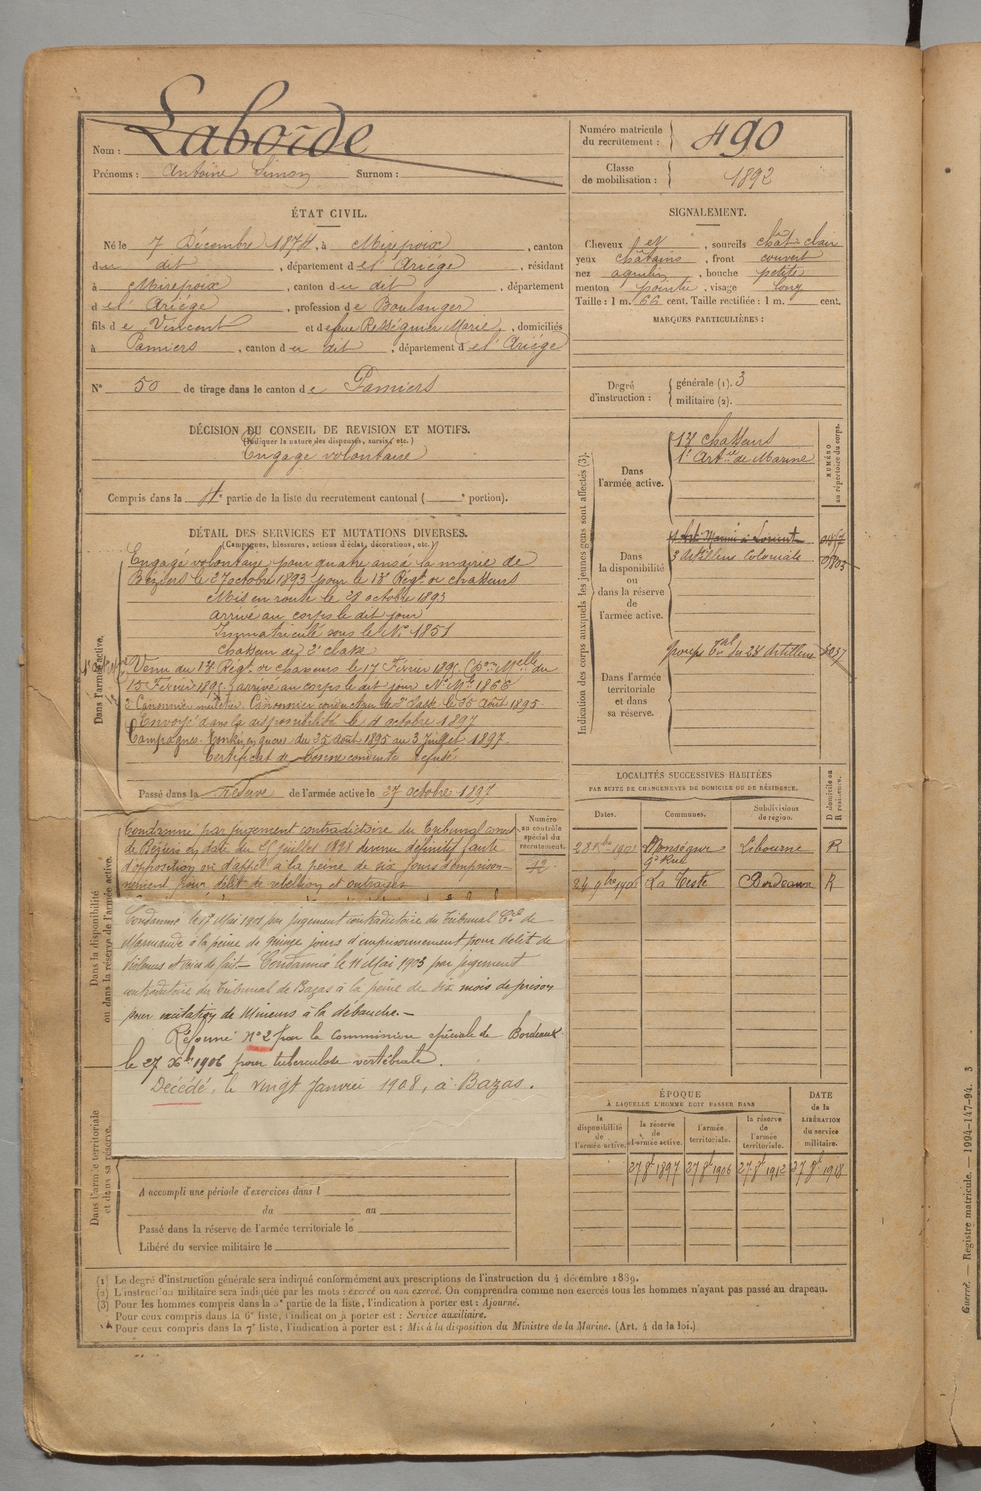 Nom : Laborde
Prénoms : Antoine Simon Surnom :
Numéro matricule du recrutement : 490
Classe de mobilisation : 1892
ÉTAT CIVIL.
Né le 7 Décembre 1874, à Mirepoix, canton
du dit, département de l'Ariège, résidant
à Mirepoix, canton du dit, département
de l'Ariège, profession de Boulanger
fils de Vincent et de feue Rességuier Marie, domiciliés
à Pamiers, canton du dit, département de l'Ariège
N° 50 de tirage dans le canton de Pamiers
SIGNALEMENT.
Cheveux et, sourcils chât-clair
yeux châtains, front couvert
nez aquilin, bouche petite
menton pointu, visage long
Taille : 1 m. 66 cent. Taille rectifiée : 1 m. cent.
MARQUES PARTICULIÈRES :
Degré d'instruction : générale (1). 3
militaire (2).
DÉCISION DU CONSEIL DE REVISION ET MOTIFS.
(Indiquer la nature des dispenses, sursis, etc.)
Engagé volontaire
Compris dans la 4e partie de la liste du recrutement cantonal ( e portion).
DÉTAIL DES SERVICES ET MUTATIONS DIVERSES.
(Campagnes, blessures, actions d'éclat, décorations, etc.)
Dans l'armée active.
Engagé volontaire pour quatre ans à la mairie de
Béziers le 27 octobre 1893 pour le 13e Régt de chasseurs
Mis en route le 28 octobre 1893
arrivé au corps le dit jour
Immatriculé sous le N° 1851
chasseur de 2e classe
Venu du 13e Régt de chasseurs le 17 Février 1895
15 Février 1895) arrivé au corps le dit jour N° Mle 1866
2e Canonnier Canonnier conducteur de 2e classe le 25 août 1895
Envoyé dans la disponibilité le octobre 1897
Campagnes. Tonkin en guerre du 25 août 1895 au 3 Juillet 1897.
Certificat de bonne conduite Refusé
Passé dans la réserve de l'armée active le 27 octobre 1897
Indication des corps auxquels les jeunes gens sont affectés (3).
NUMÉRO au répertoire du corps.
Dans l'armée active.
13e chasseurs
1er Artie de Marine
Dans la disponibilité ou dans la réserve de l'armée active.
Art. Marine à Lorient
3 Artillerie Coloniale
Dans l'armée territoriale et dans sa réserve.
Groupe Tal du 24 Artillerie
LOCALITÉS SUCCESSIVES HABITÉES
PAR SUITE DE CHANGEMENTS DE DOMICILE OU DE RÉSIDENCE.
Dates. Communes. Subdivisions de région. D domicile ou R résidence.
1901 Monségur Gde Rue Libourne R
24 9bre La Teste Bordeaux R
Dans la disponibilité ou dans la réserve de l'armée active.
Numéro au contrôle spécial du recrutement.
12
Condamné par jugement contradictoire du Tribunal corrl
de Béziers en date du juillet 1898 devenu définitif faute
d'opposition ou d'appel à la peine de six jours d'emprison-
nement pour délit de rébellion et outrages
Condamné le 18 Mai 1901 par jugement contradictoire du Tribunal Cel de
Marmande à la peine de quinze jours d'emprisonnement pour délit de
violences et voies de fait. — Condamné le 11 Mai 1903 par jugement
contradictoire du Tribunal de Bazas à la peine de six mois de prison
pour excitation de Mineurs à la débauche. —
Réformé n° 2 par la commission spéciale de Bordeaux
le 27 Xbre 1906 pour tuberculose vertébrale.
Décédé, le vingt Janvier 1908, à Bazas.
ÉPOQUE
À LAQUELLE L'HOMME DOIT PASSER DANS
la disponibilité de l'armée active.
la réserve de l'armée active.
l'armée territoriale.
la réserve de l'armée territoriale.
DATE de la LIBÉRATION du service militaire.
27 8e 1897 27 8e 1906 27 8e 1912 27 8e 1918
Dans l'armée territoriale et dans sa réserve.
A accompli une période d'exercices dans l
du au
Passé dans la réserve de l'armée territoriale le
Libéré du service militaire le
(1) Le degré d'instruction générale sera indiqué conformément aux prescriptions de l'instruction du 4 décembre 1889.
(2) L'instruction militaire sera indiquée par les mots : exercé ou non exercé. On comprendra comme non exercés tous les hommes n'ayant pas passé au drapeau.
(3) Pour les hommes compris dans la 5e partie de la liste, l'indication à porter est : Ajourné.
Pour ceux compris dans la 6e liste, l'indication à porter est : Service auxiliaire.
Pour ceux compris dans la 7e liste, l'indication à porter est : Mis à la disposition du Ministre de la Marine. (Art. 4 de la loi.)
Guerre. — Registre matricule. — 1994-147-94. 3